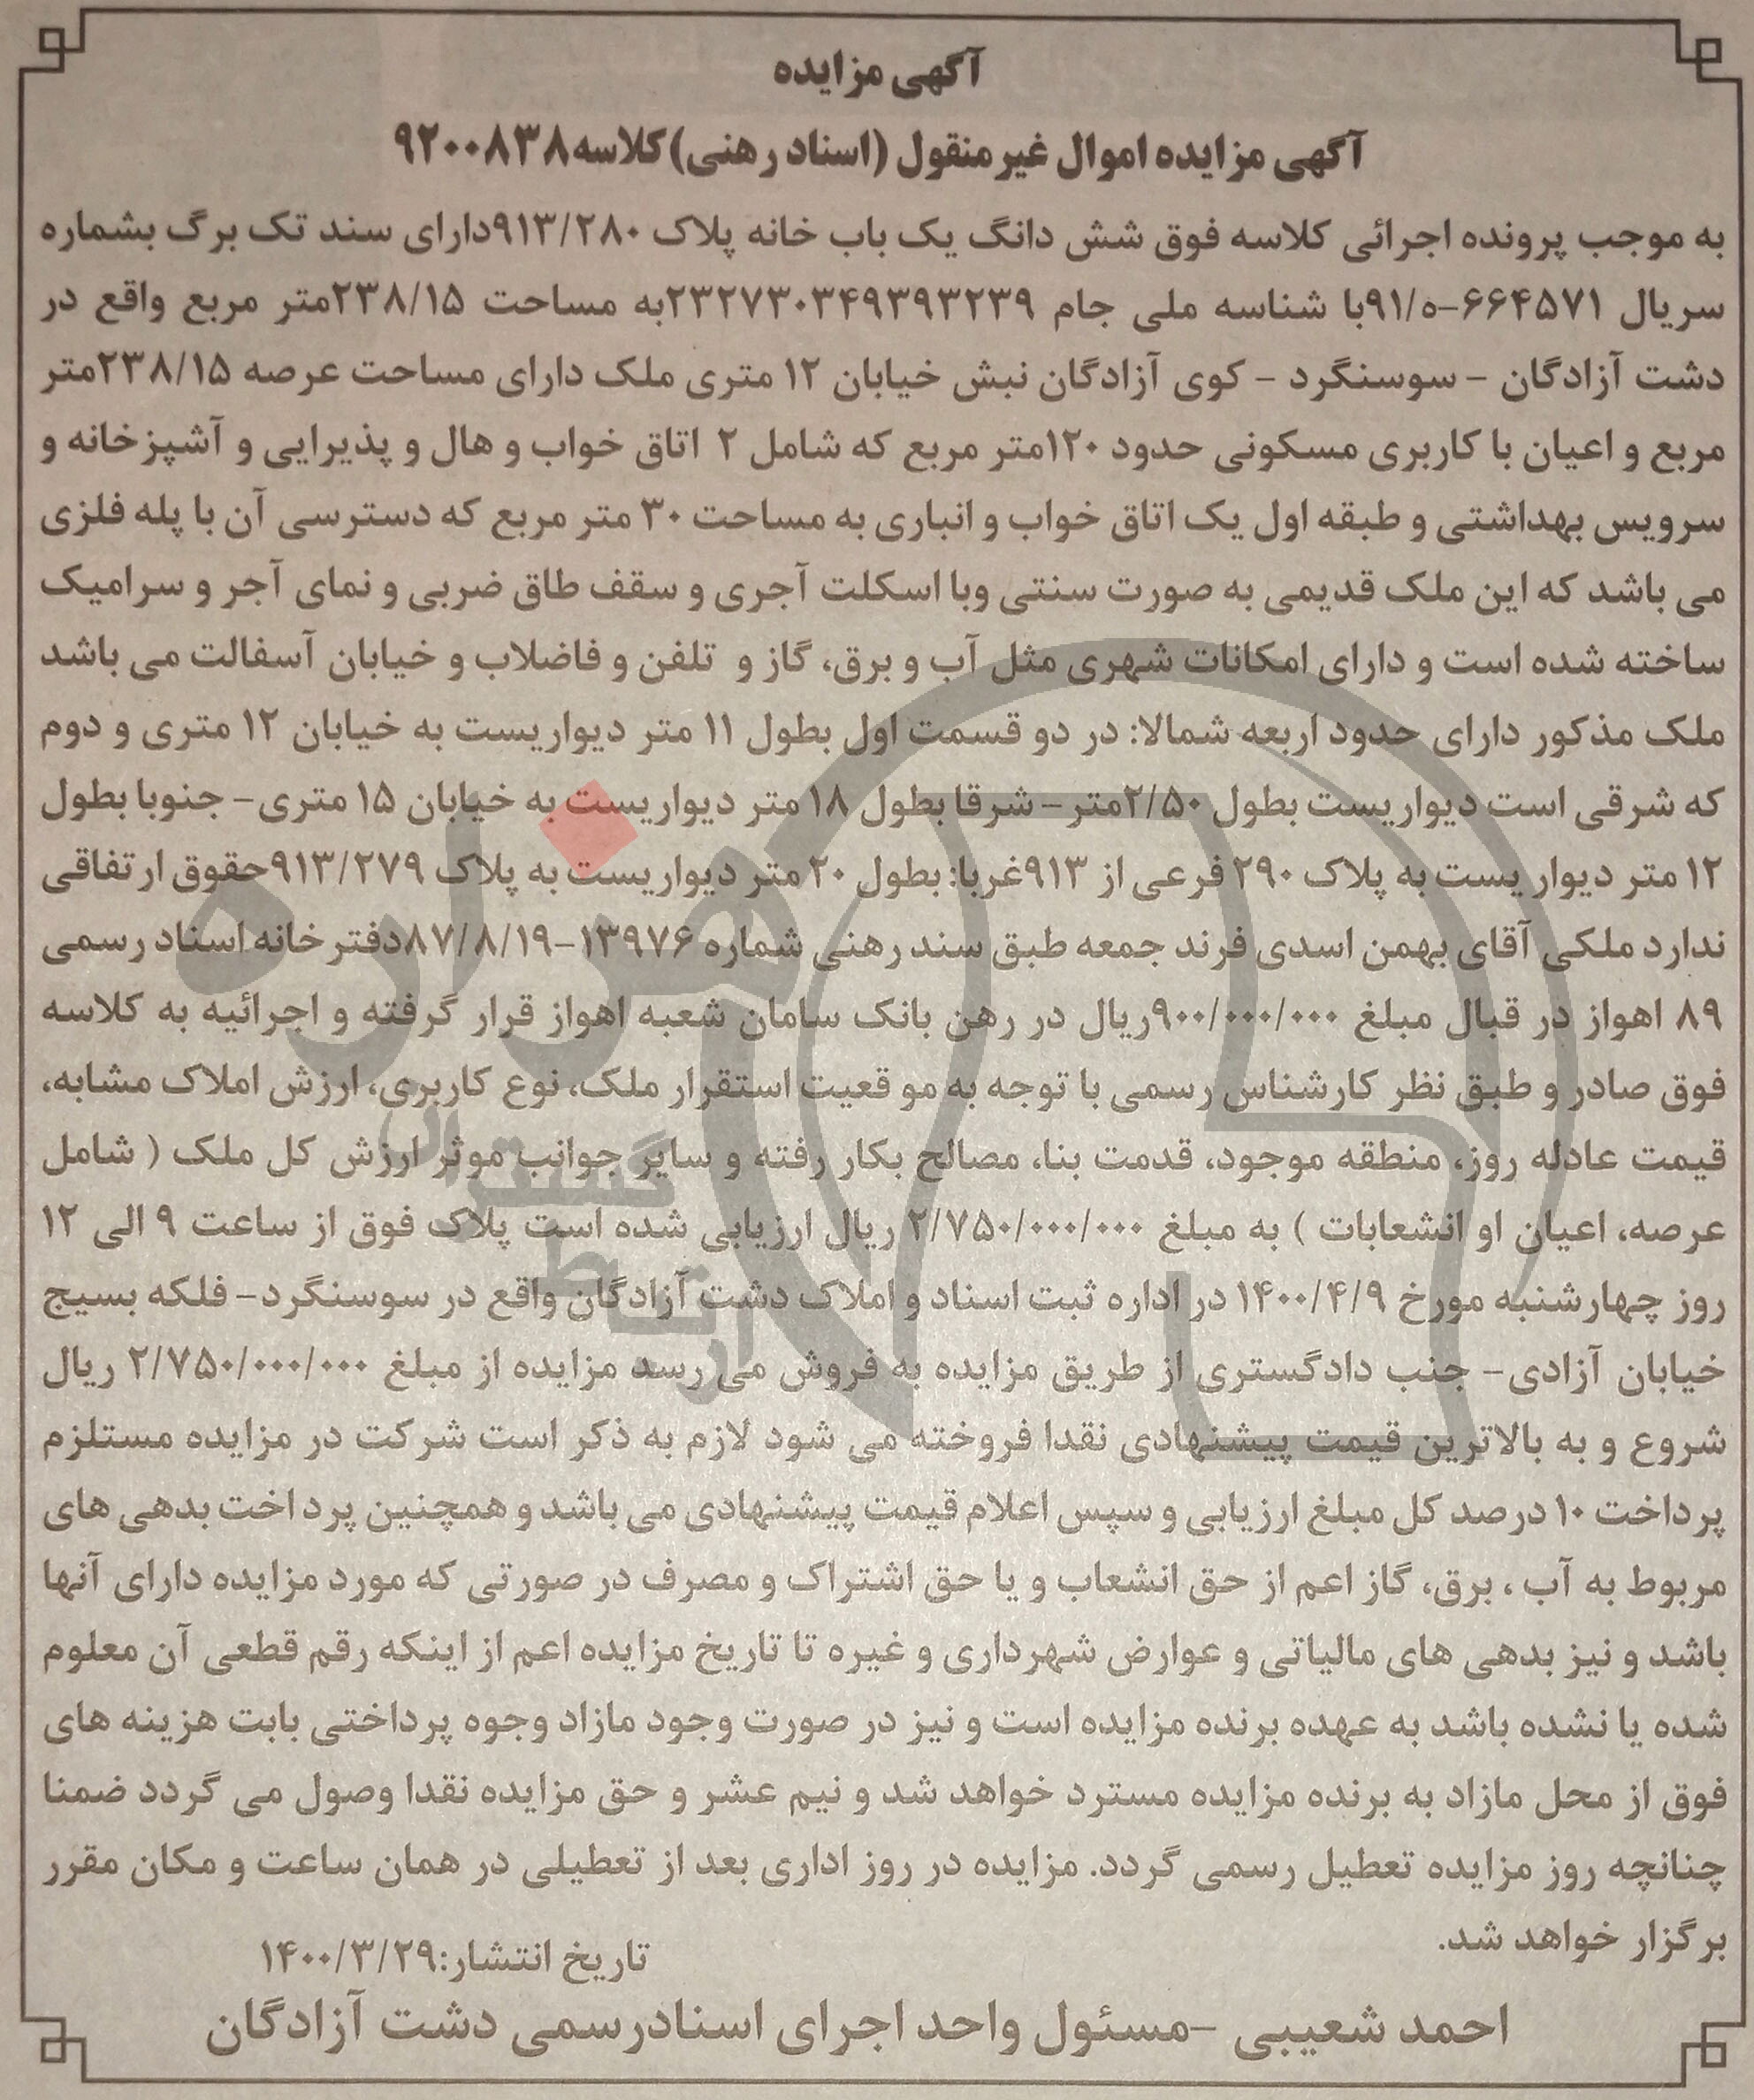 آگهی مزایده
آگهی مزایده اموال غیرمنقول (اسناد رهنی)کلاسه۹۲۰۰۸۳۸
به موجب پرونده اجرائی کلاسه فوق شش دانگ یک باب خانه پلاک ۹۱۳/۲۸۰دارای سند تک برگ بشماره
سریال ۶۶۴۵۷۱-ه/۹۱با شناسه ملی جام ۲۳۲۷۳۰۳۴۹۳۹۳۲۳۹به مساحت ۲۳۸/۱۵متر مربع واقع در
دشت آزادگان - سوسنگرد - کوی آزادگان نبش خیابان ۱۲ متری ملک دارای مساحت عرصه ۲۳۸/۱۵متر
مربع و اعیان با کاربری مسکونی حدود ۱۲۰متر مربع که شامل ۲ اتاق خواب و هال و پذیرایی و آشپزخانه و
سرویس بهداشتی و طبقه اول یک اتاق خواب و انباری به مساحت ۳۰ متر مربع که دسترسی آن با پله فلزی
می باشد که این ملک قدیمی به صورت سنتی وبا اسکلت آجری و سقف طاق ضربی و نمای آجر و سرامیک
ساخته شده است و دارای امکانات شهری مثل آب و برق، گاز و تلفن و فاضلاب و خیابان آسفالت می باشد
ملک مذکور دارای حدود اربعه شمالا: در دو قسمت اول بطول ۱۱ متر دیواریست به خیابان ۱۲ متری و دوم
که شرقی است دیواریست بطول ۲/۵۰متر- شرقا بطول ۱۸ متر دیواریست به خیابان ۱۵ متری- جنوبا بطول
۱۲ متر دیوار یست به پلاک ۲۹۰ فرعی از ۹۱۳غربا: بطول ۲۰ متر دیواریست به پلاک ۹۱۳/۲۷۹حقوق ارتفاقی
ندارد ملکی آقای بهمن اسدی فرند جمعه طبق سند رهنی شماره ۱۳۹۷۶-۸۷/۸/۱۹دفتر خانه اسناد رسمی
۸۹ اهواز در قبال مبلغ ۹۰۰/۰۰۰/۰۰۰ریال در رهن بانک سامان شعبه اهواز قرار گرفته و اجرائیه به کلاسه
فوق صادر و طبق نظر کارشناس رسمی با توجه به مو قعیت استقرار ملک، نوع کاربری، ارزش املاک مشابه،
قیمت عادله روز، منطقه موجود، قدمت بنا، مصالح بکار رفته و سایر جوانب موثر ارزش کل ملک ( شامل
عرصه، اعیان او انشعابات ) به مبلغ ۲/۷۵۰/۰۰۰/۰۰۰ ریال ارزیابی شده است پلاک فوق از ساعت ۹ الی ۱۲
روز چهارشنبه مورخ ۱۴۰۰/۴/۹ در اداره ثبت اسناد و املاک دشت آزادگان واقع در سوسنگرد- فلکه بسیج
خیابان آزادی- جنب دادگستری از طریق مزایده به فروش می رسد مزایده از مبلغ ۲/۷۵۰/۰۰۰/۰۰۰ ریال
شروع و به بالاترین قیمت پیشنهادی نقدا فروخته می شود لازم به ذکر است شرکت در مزایده مستلزم
پرداخت ۱۰ درصد کل مبلغ ارزیابی و سپس اعلام قیمت پیشنهادی می باشد و همچنین پرداخت بدهی های
مربوط به آب ، برق، گاز اعم از حق انشعاب و یا حق اشتراک و مصرف در صورتی که مورد مزایده دارای آنها
باشد و نیز بدهی های مالیاتی و عوارض شهرداری و غیره تا تاریخ مزایده اعم از اینکه رقم قطعی آن معلوم
شده یا نشده باشد به عهده برنده مزایده است و نیز در صورت وجود مازاد وجوه پرداختی بابت هزینه های
فوق از محل مازاد به برنده مزایده مسترد خواهد شد و نیم عشر و حق مزایده نقدا وصول می گردد ضمنا
چنانچه روز مزایده تعطیل رسمی گردد. مزایده در روز اداری بعد از تعطیلی در همان ساعت و مکان مقرر
برگزار خواهد شد.
تاریخ انتشار:۱۴۰۰/۳/۲۹
احمد شعیبی -مسئول واحد اجرای اسنادرسمی دشت آزادگان
هزاره
گستران
ارتباط